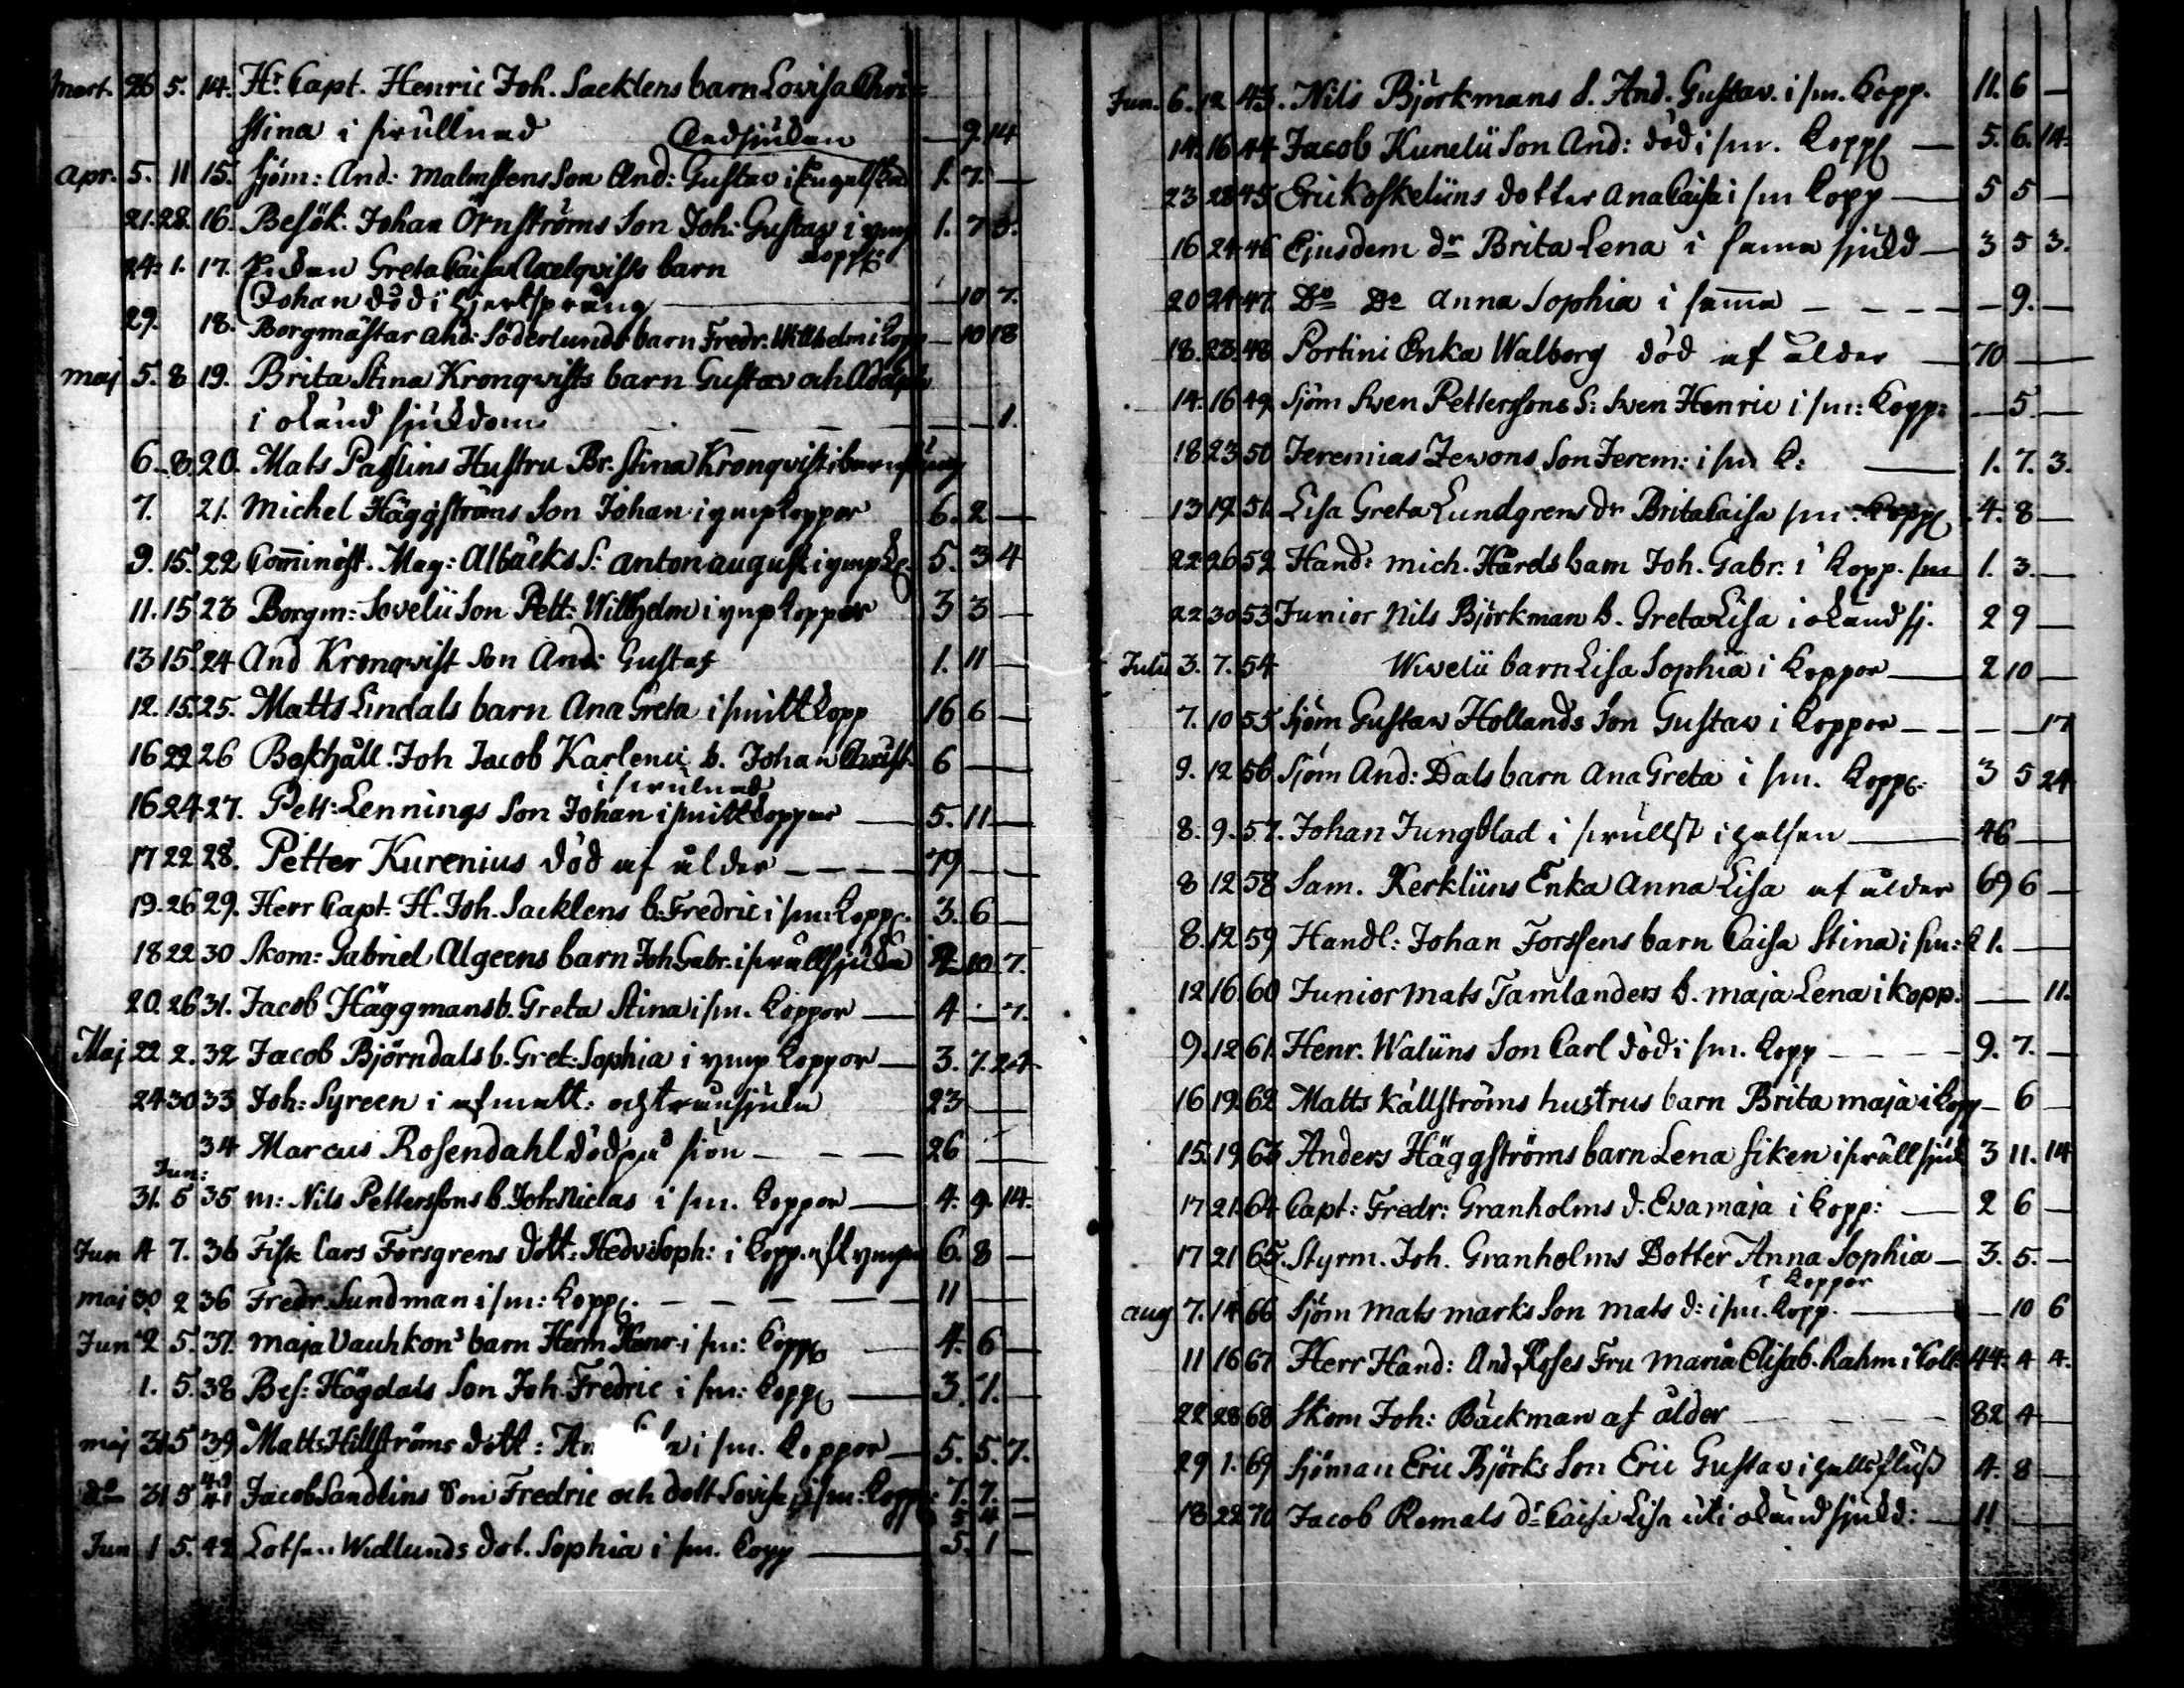 Mart. 26 5. 14. Hr Capt. Henric Joh. Sacklens barn Lovisa Chri=
stina i swullnad Andsjukan — 9. 14
Apr. 5. 11 15. Sjöm: And: Malmstens Son And: Gustav i 1. 7. —
21. 28. 16. Besök. Johan Örnströms Son Joh: Gustav i ymp 1. 7 3.
kopp:
24. 1. 17. Enkan Greta Caisa Axelqvists barn
Johan död i Hjertsprång — 10 7.
29. 18. Borgmästar And: Söderlunds barn Fredr. Willhelm i Kopp — 10 18
Maj 5. 8 19. Brita Stina Kronqvists barn Gustav och Adolph
i okänd sjukdom — — — 1.
6. 8. 20. Mats Passlins Hustru Br. Stina Kronqvist i barnsäng
7. 21. Michel Häggströms Son Johan i ympkoppor 6. 2 —
9. 15. 22 Cominist. Mag: Albäcks S: Anton August i ymp k. 5. 3 4
11. 15 23 Borgm: Sovelii Son Pett: Willhelm i ympkoppor 3 3 —
13 15. 24 And Kronqvist Son And: Gustaf 1. 11 —
12. 15. 25. Matts Lindals barn Ana Greta i smittkopp 16 6 —
16 22 26 Bokhåll. Joh Jacob Karlenii b. Johan Christ. 6 —
i swulnad
16 24 27. Pett: Lennings Son Johan i smittkoppor — 5. 11 —
17 22 28. Petter Kurenius död af ålder — — — 79 — —
19. 26 29. Herr Capt. H. Joh. Sacklens b. Fredric i sm: kopp. 3. 6 —
18 22 30 Skom: Gabriel Algeens barn Joh Gabr. i swullsjuka 2 10 7.
20. 26 31. Jacob Häggmans b. Greta Stina i sm. koppor — 4 — 7.
Maj 22 2. 32 Jacob Björndals b. Gret: Sophia i ymp koppor — 3. 7. 24
24 30 33 Joh: Syreen i afmatt: och transjuka 23 —
34 Marcus Rosendahl död på siön — — — 26 —
Jun:
31. 5 35 m: Nils Petterssons b. Joh Niclas i sm. koppor — 4. 9. 14.
Jun 4 7. 36 Fisk Lars Forsgrens dott: Hedv: Soph: i kopp. efl ympn 6. 8 —
Maj 30 2 36 Fredr. Sundman i sm: kopp. — — — 11 —
Jun 2 5. 37. Maja Vauhkons barn Herm Henr. i sm: kopp — 4. 6 —
1. 5. 38 Bes: Högdals Son Joh. Fredric i sm: kopp — 3. 1. —
Maj 31 5 39. Matts Hillströms dott: An i sm. koppor — 5. 5. 7.
do 31 5 40 41 Jacob Sandlins Son Fredric och dott Lovisa i sm: kopp: 7. 7. —
5 4 —
Jun 1 5. 42 Lotsen Widlunds dot. Sophia i sm. kopp — 5. 1 —
Jun. 6. 12 43. Nils Björkmans S. And. Gustav. i sm. kopp. 11. 6 —
14. 16 44 Jacob Kunelii Son And: död i sm. kopp — 5. 6. 14.
23 28 45 Eric Koskeliins dotter Ana Caisa i sm kopp — 5 5 —
16 24 46 Ejusdem dr Brita Lena i sama sjukd — 3 5 3.
20 24 47. Do Do Anna Sophia i sam̄a — — — — 9. —
18. 23. 48 Portini Enka Walborg död af ålder — 70 —
14. 16 49. Sjöm Swen Petterssons S: Swen Henric i sm: kopp: — 5. —
18 23 50 Jeremias Zewons Son Jerem: i sm k: — 1. 7. 3.
13 19. 51. Lisa Greta Lundgrens dr Brita Caisa sm: kopp 4. 8 —
22 26 52 Hand: Mich. Hårds barn Joh. Gabr. i kopp. sm 1. 3. —
22 30 53 Junior Nils Björkman b. Greta Lisa i okänd sj. 2 9 —
Julii 3. 7. 54 Wivelii barn Lisa Sophia i koppor — 2 10 —
7. 10 55 Sjöm Gustaw Hollands Son Gustav i koppor — — — 17
9. 12 56 Sjöm And: Dals barn Ana Greta i sm. kopp: 3 5 24
8. 9. 57. Johan Jungblad i swullst i halsen — 46 —
8 12 58 Sam. Kerkliins Enka Anna Lisa af ålder 69 6 —
8. 12 59 Handl: Johan Forssens barn Caisa Stina i sm: k 1. —
12 16 60 Junior Mats Tamlanders b. Maja Lena i kopp. — 11.
9. 12 61. Henr. Waliins Son Carl död i sm. kopp — — — 9. 7. —
16 19. 62 Matts Källströms hustrus barn Brita Maja i kopp — 6 —
15. 19 63 Anders Häggströms barn Lena Fiken i swullsjuk 3 11. 14
17 21. 64 Capt: Fredr: Granholms d. Eva Maja i kopp: — 2 6 —
17 21 65. Styrm. Joh. Granholms Dotter Anna Sophia — 3. 5. —
i koppor
Aug 7. 14 66 Sjöm Mats Marks Son Mats d: i sm. kopp. — — 10 6
11 16 67 Herr Hand: And. Rosses Fru Maria Elisab. Rahm i Kolk 44. 4 4.
22 28 68 Skom Joh: Bäckman af ålder — — — 82 4 —
29 1. 69 Sjöman Eric Björks Son Eric Gustav i halls fluss 4. 8 —
18 22 70 Jacob Remals dr Caisa Lisa uti okänd sjukd: — 11 —